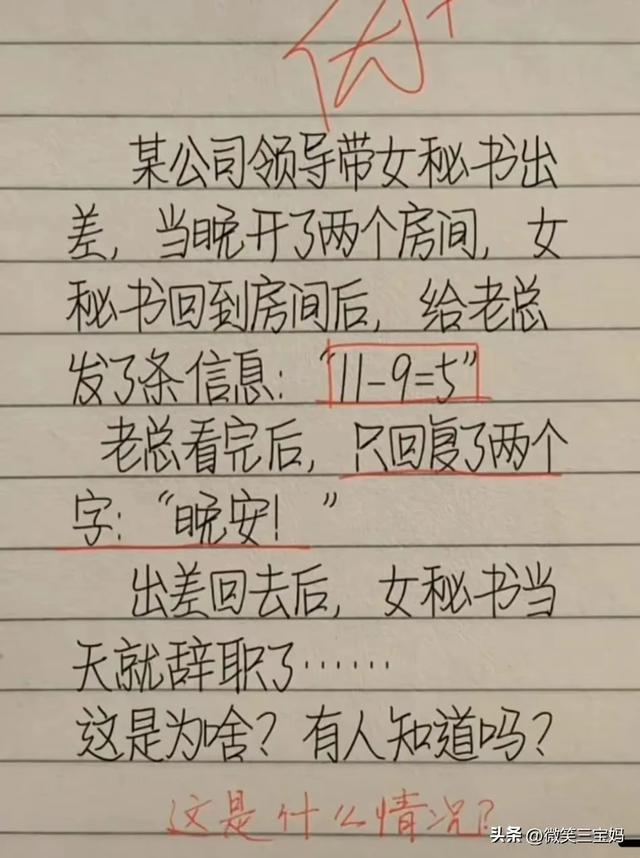 优+
某公司领导带女秘书出
差，当晚开了两个房间，女
秘书回到房间后，给老总
发了条信息：“11-9=5”
老总看完后，只回复了两个
字：“晚安！”
出差回去后，女秘书当
天就辞职了……
这是为啥？有人知道吗？
这是什么情况？
头条 @微笑三宝妈